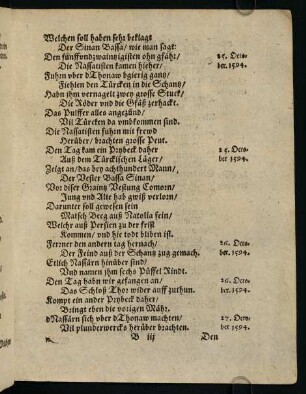 Welchen soll haben sehr beklagt
Der Sinan Bassa/ wie man sagt:
Den fünffundzwaintzigisten ohn gfähr/
Die Nassatisten kamen hieher/
25. Octo-
ber. 1594.
Fuhrn vber dThonaw bgierig gantz/
Fiehlen den Türcken in die Schantz/
Habn ihm vernagelt zwey grosse Stuck/
Die Röder vnd die Gfäß zerhackt.
Das Pulffer alles angezünd/
Vil Türcken da vmbkommen sind.
Die Nassatisten fuhrn mit frewd
Herüber/ brachten grosse Peut.
Den Tag kam ein Prybeck daher
Auß dem Türckischen Läger/
25. Octo-
ber 1594.
Zeigt an/ das bey achthundert Mann/
Der Vester Bassa Sinan/
Vor diser Grantz Vestung Comorn/
Jung vnd Alte hab gwiß verlorn/
Darunter soll gewesen sein
Matsch Beeg auß Natolia sein/
Welchr auß Persien zu der frist
Kommen/ vnd hie todt bliben ist.
Ferrner den andern tag hernach/
Der Feind auß der Schantz zug gemach.
26. Octo-
ber. 1594.
Etlich Nassärn hinüber sind/
Vnd namen jhm sechs Püffel Rindt.
Den Tag habn wir gefangen an/
Das Schloß Thor wider auff zuthun.
26. Octo-
ber. 1594.
Kompt ein ander Prybeck daher/
Bringt eben die vorigen Mähr.
dNassärn sich vber dThonaw machten/
Vil plunderwercks herüber brachten.
27. Octo-
ber 1594.
B iij
Den